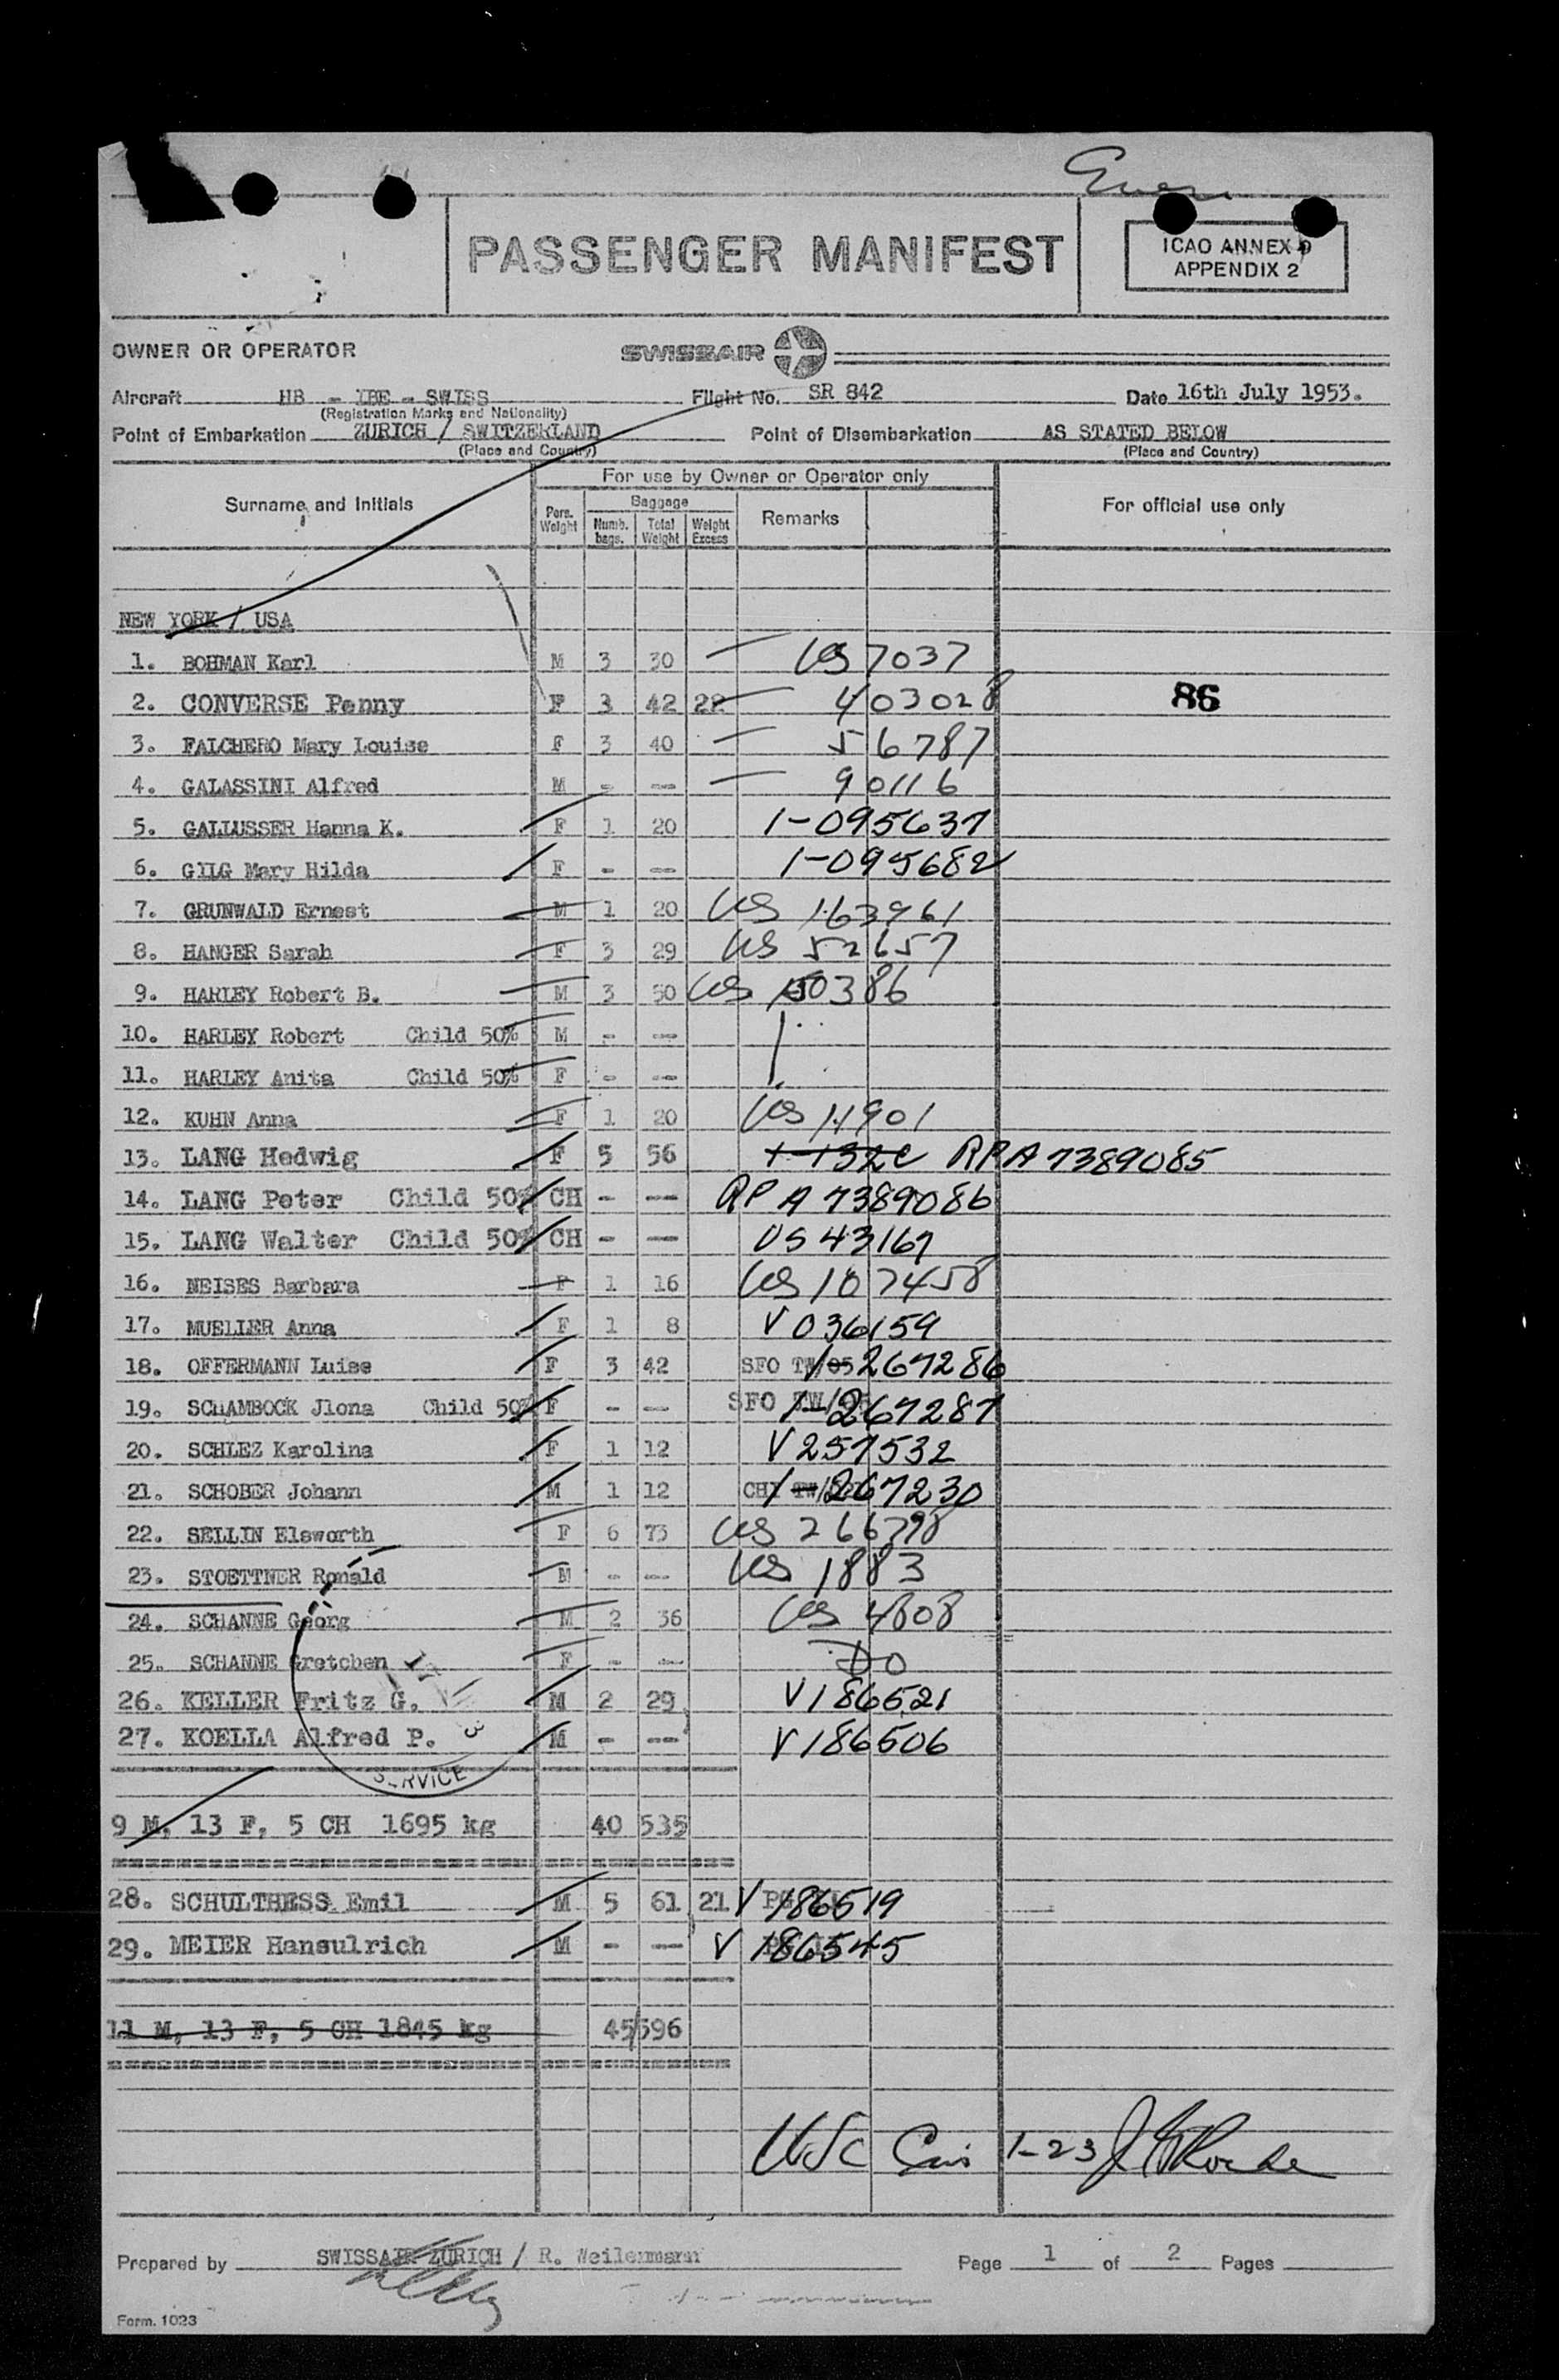 PASSENGER MANIFEST
ICAO ANNEX 9
APPENDIX 2
OWNER OR OPERATOR SWISSAIR
Aircraft HB - IBE - SWISS Flight No. SR 842 Date 16th July 1953.
(Registration Marks and Nationality)
Point of Embarkation ZURICH / SWITZERLAND Point of Disembarkation AS STATED BELOW
(Place and Country) (Place and Country)
For use by Owner or Operator only
Surname and Initials Pers. Weight Baggage Remarks For official use only
Numb. bags. Total Weight Weight Excess
NEW YORK / USA
1. BOHMAN Karl M 3 30 US 7037
2. CONVERSE Penny F 3 42 22 403028 86
3. FALCHERO Mary Louise F 3 40 56787
4. GALASSINI Alfred M - -- 90116
5. GALLUSSER Hanna K. F 1 20 1-095637
6. GILG Mary Hilda F - -- 1-095682
7. GRUNWALD Ernest M 1 20 US 163961
8. HANGER Sarah F 3 29 US 52657
9. HARLEY Robert B. M 3 50 US 150386
10. HARLEY Robert Child 50% M - --
11. HARLEY Anita Child 50% F - --
12. KUHN Anna F 1 20 US 11901
13. LANG Hedwig F 5 56 RPA 7389085
14. LANG Peter Child 50% CH - -- RPA 7389086
15. LANG Walter Child 50% CH - -- US 43167
16. NEISES Barbara F 1 16 US 107458
17. MUELLER Anna F 1 8 V 036159
18. OFFERMANN Luise F 3 42 SFO 267286
19. SCHAMBOCK Jlona Child 50% F - -- SFO 1-267287
20. SCHLEZ Karolina F 1 12 V 257532
21. SCHOBER Johann M 1 12 CHI 1-267230
22. SELLIN Elsworth F 6 73 US 266798
23. STOETTNER Ronald M - -- US 1883
24. SCHANNE Georg M 2 36 US 4808
25. SCHANNE Gretchen F - -- DO
26. KELLER Fritz G. M 2 29 V 186521
27. KOELLA Alfred P. M - -- V 186506
SERVICE
9 M, 13 F, 5 CH 1695 kg 40 535
28. SCHULTHESS Emil M 5 61 21 V 186519
29. MEIER Hansulrich M - -- V 186545
11 M, 13 F, 5 CH 1845 kg 45/596
1-23
Prepared by SWISSAIR ZURICH / R. Weilenmann Page 1 of 2 Pages
Form. 1023